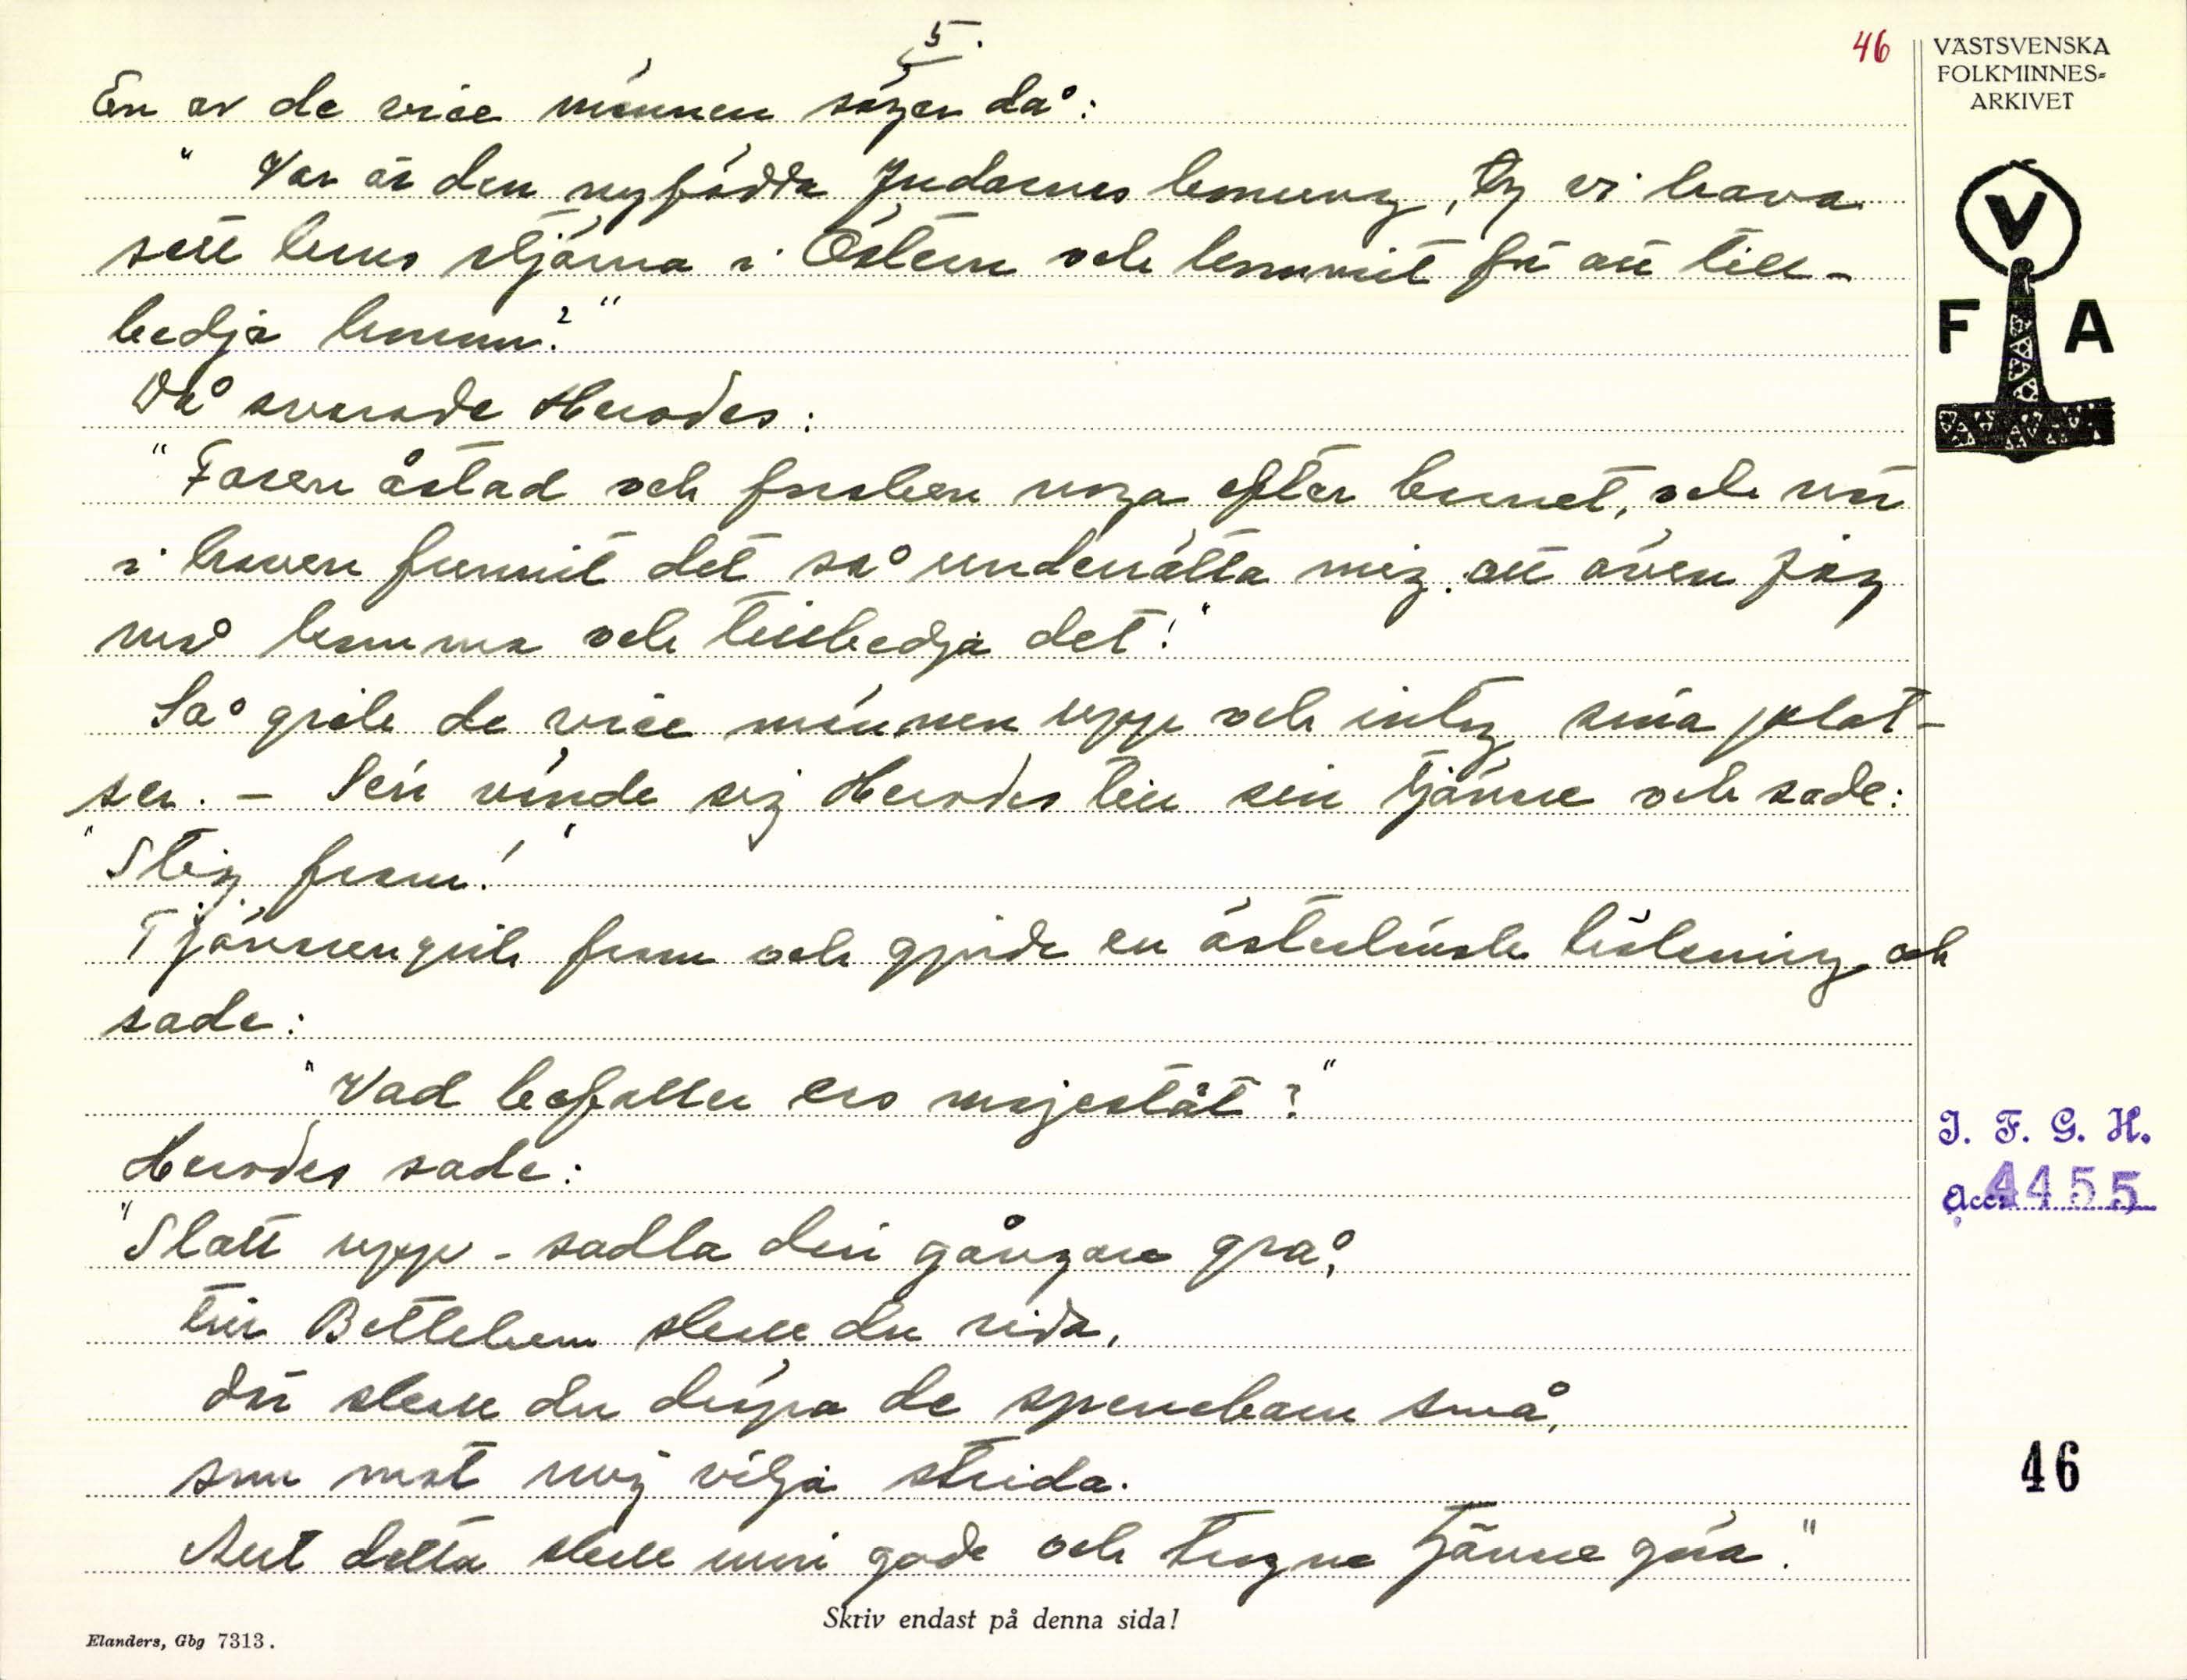 5.
46
VÄSTSVENSKA
FOLKMINNES=
ARKIVET
En av de vise männen säger då:
" Var är den nyfödda Judarnes konung, ty vi hava
sett hans stjärna i Östern och kommit för att till-
bedja honom?"
Då svarade Herodes:
"Faren åstad och forsken noga efter barnet, och när
i haven funnit det så underrätta mig, att även jag
må komma och tillbedja det!"
Så gick de vise männen upp och intog sina plat-
ser. - Sen vände sig Herodes till sin tjänare och sade:
"Stig fram!"
Tjänaren gick fram och gjorde en österländsk hälsning och
sade:
"Vad befaller ers majestät?"
Herodes sade:
"Statt upp - sadla din gångare grå,
till Betlehem skall du rida,
där skall du dräpa de spenebarn små,
som mot mig vilja strida.
Allt detta skall min gode och trogne tjänare göra."
V
F A
I. F. G. H.
Acc. 4455
46
Skriv endast på denna sida!
Elanders, Gbg 7313.